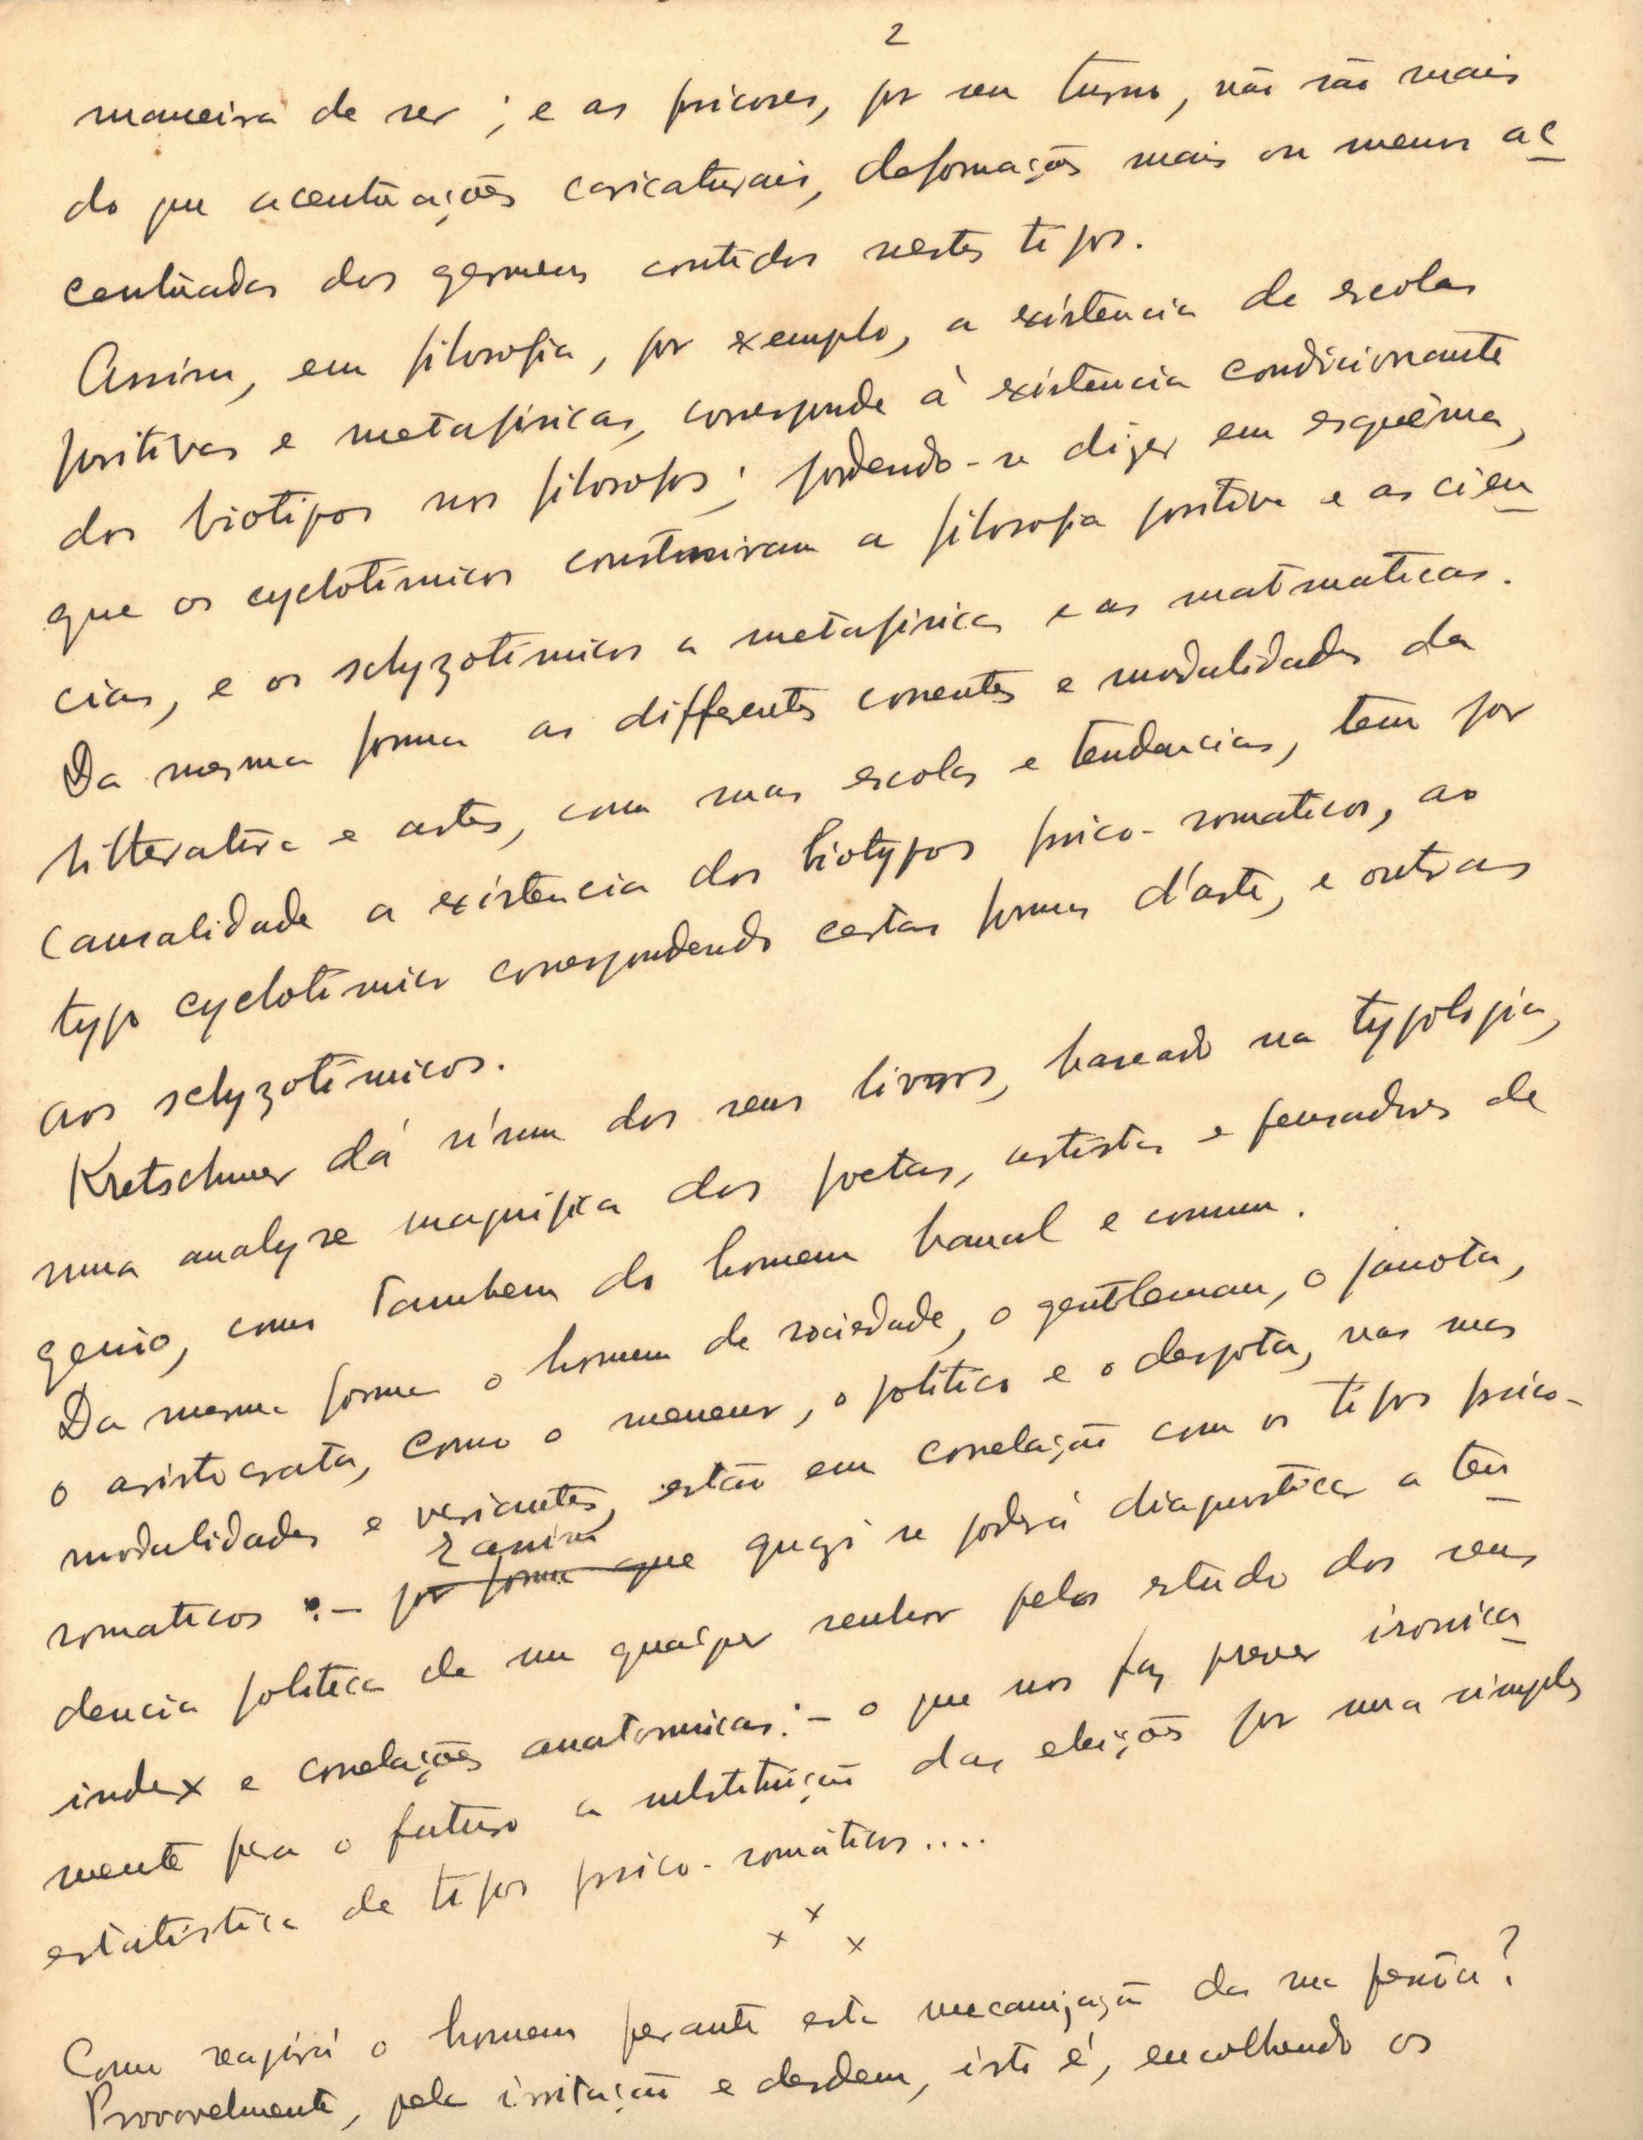 2
maneira de ser ; e as psicoses, por seu turno, não são mais
do que acentuações caricaturais, deformações mais ou menos ac
centuadas dos germens contidos nestes tipos.
Assim, em filosofia, por exemplo, a existencia de escolas
positivas e metafisicas, corresponde à existencia condicionante
dos biotipos nos filosofos ; podendo-se dizer em esquêma,
que os cyclotimicos construiram a filosofia positiva e as cien
cias, e os schyzotimicos a metafisica e as matematicas.
Da mesma forma as differentes correntes e modalidades da
litteratura e artes, com suas escolas e tendencias, tem por
causalidade a existencia dos biotypos psico-somaticos, ao
typo cyclotimico correspondendo certas formas d'arte, e outras
aos schyzotimicos.
Kretschmer dá n'um dos seus livros, baseado na typologia,
uma analyse magnifica dos poetas, artistas e pensadores de
genio, como tambem do homem banal e comum.
Da mesma forma o homem de sociedade, o gentleman, o janota,
o aristocrata, como o meneur, o politico e o despota, nas suas
modalidades e variantes, estão em correlação com os tipos psico-
E assim
somaticos :- por forma que quazi se poderá diagnosticar a ten
dencia politica de um qualquer senhor pelo estudo dos seus
index e correlações anatomicas :- o que nos faz prever ironica
mente para o futuro a substituição das eleições por uma simples
estatistica de tipos psico-somáticos....
x x x
Como reagirá o homem perante esta mecanização da sua pessôa?
Provavelmente, pela irritação e desdem, isto é, encolhendo os